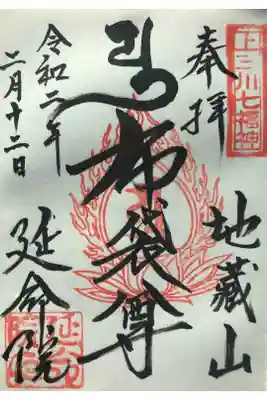 三川七福神
奉拝
地藏山
布袋尊
令和二年
二月十二日
延命院